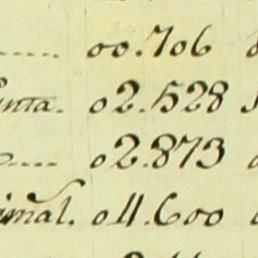 ..... 00.706
inta. 02.528
.... 02.873
imal. 04.600